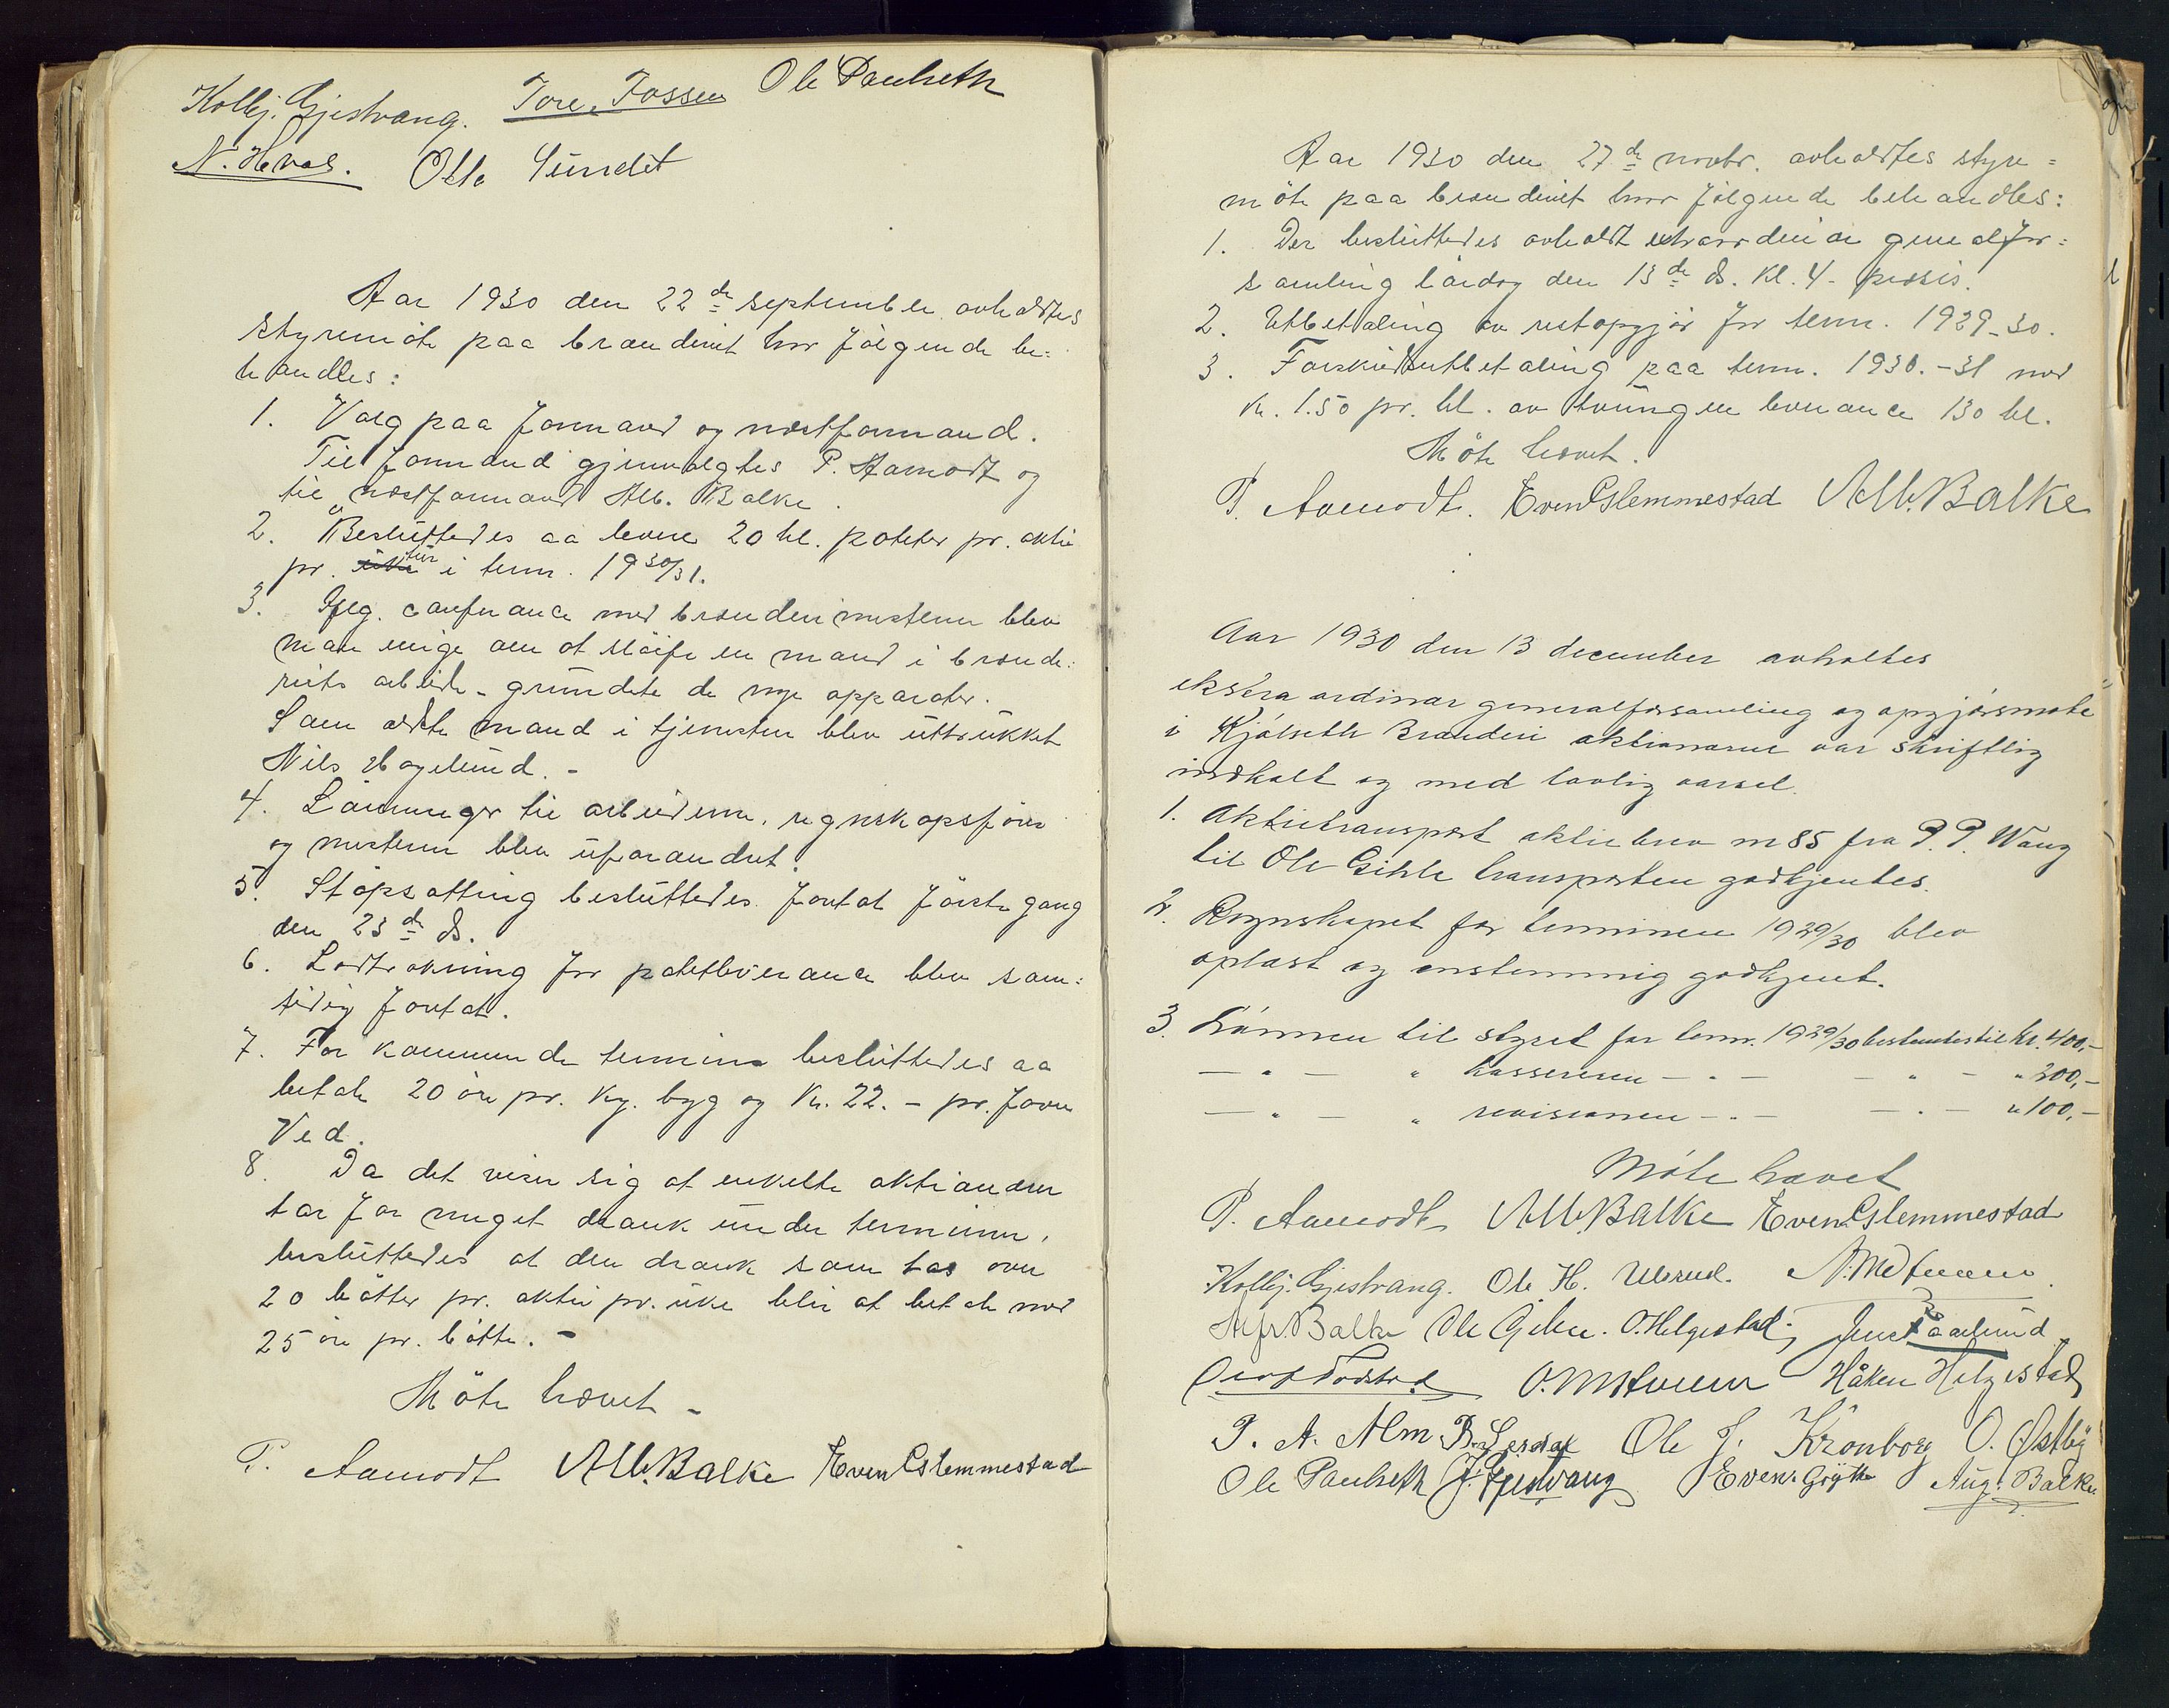 Kolbj. Gjestvang. Tore Fossen Ole Paulseth
N. Hval. Otto Sundet
Aar 1930 den 22de september avholdtes
styremöte paa brænderiet hvor fölgende be=
handles:
1. Valg paa formand og næstformand.
Til formand gjenvalgtes P. Aamodt og
til næstformand Alb. Balke.
2. Besluttedes aa levere 20 hl. poteter pr. aktie
pr. tur i term. 1930/31.
3. Iflg. conferance med brænderimesteren blev
man enige om at slöife en mand i brænde=
riets arbeide - grundet de nye apparater.
Som ældste mand i tjenesten blev uttrukket
Nils Hagelund. -
4. Lönninger til arbeiderne, regnskapsförer
og mesteren blev uforandret.
5. Stöpsætting besluttedes foretat förste gang
den 23de ds.
6. Lodtrækning for potetleverance blev sam=
tidig foretat.
7. For kommende termin besluttedes aa
betale 20 öre pr. kg. byg og Kr. 22.- pr. favn
Ved.
8. Da det viser sig at enkelte aktionærer
tar for meget drank under terminen,
besluttedes at den drank som tas over
20 bötter pr. aktie pr. uke blir at betale med
25 öre pr. bötte. -
Möte hævet -
P. Aamodt Alb. Balke Even Glemmestad
Aar 1930 den 27de novbr. avholdtes styre=
möte paa brænderiet hvor fölgende behandles:
1. Der besluttedes avholdt extraordinær generalfor=
samling lördag den 13de ds. Kl. 4 - præsis.
2. Utbetaling av restopgjör for term. 1929-30.
3. Forskudsutbetaling paa term. 1930.-31 med
Kr. 1.50 pr. hl. av tvungen leverance 130 hl.
Möte hævet.
P. Aamodt. Even Glemmestad Alb. Balke
Aar 1930 den 13 december avholtes
ekstra ordinær generalforsamling og opgjörsmöte
i Kjölseth Brænderi aktionærene var skriftlig
indkalt og med lovlig varsel.
1. Aktietransport aktiebrev nr 85 fra P. P. Wang
til Ole Gihle transporten godkjentes.
2. Regnskapet for terminen 1929/30 blev
oplæst og enstemmig godkjent.
3. Lönnen til styret for term. 1929/30 bestemtes til Kr. 400,-
— " — " kassereren — " — — " — " 300,-
— " — " revisoren — " — — " — " 100,-
Möte hævet
P. Aamodt Alb. Balke Even Glemmestad
Kolbj. Gjestvang. Ole H. Ulsrud.
Alfr. Balke Ole Gihle. O. Helgestad. Jens Paalund
Håken Helgestad
P. A. Alm Ole J. Kronborg O. Østby
Ole Paulseth J. Gjestvang Even Grytte Aug. Balke